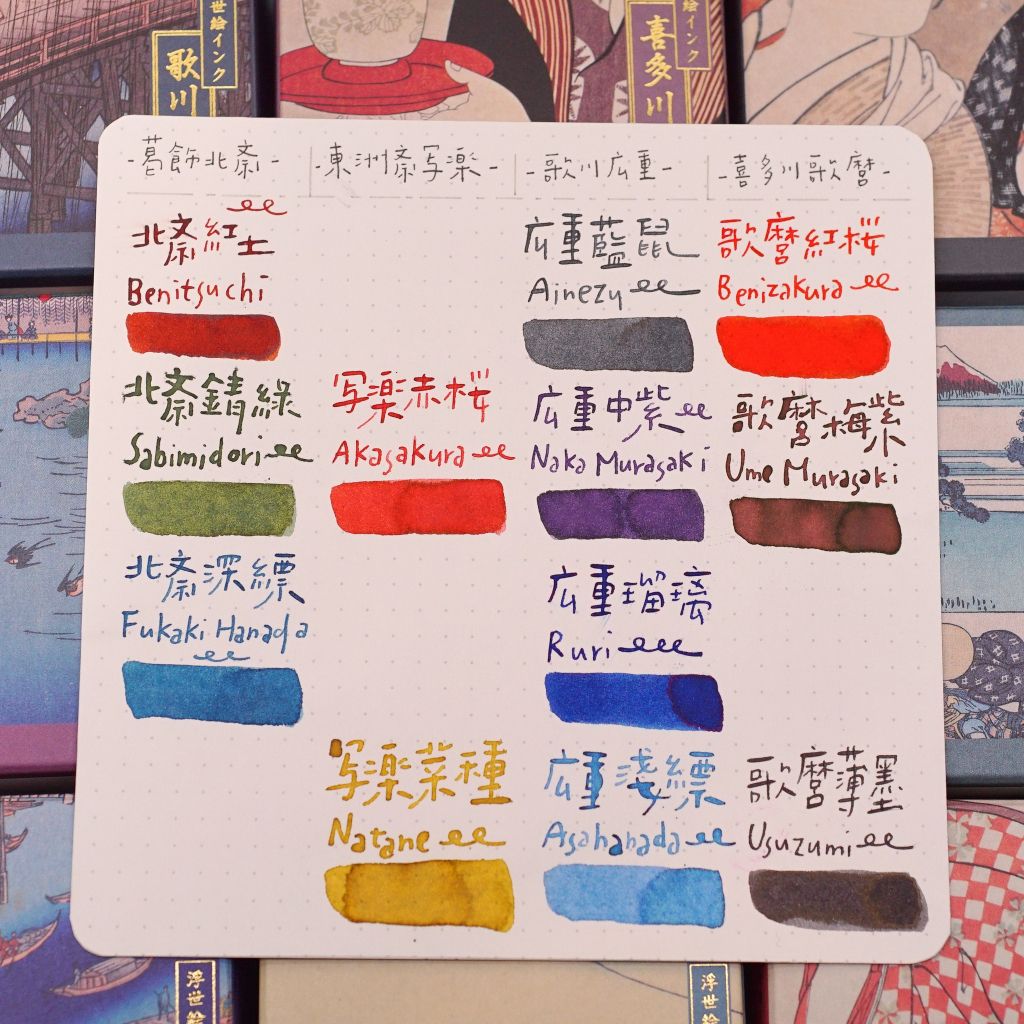 世絵インク
歌川
世絵インク
喜多川
-葛飾北斎-
-東洲斎写楽-
-歌川広重-
-喜多川歌麿-
北斎紅土
Benitsuchi
北斎錆緑
Sabimidori
北斎深縹
Fukaki Hanada
写楽赤桜
Akasakura
写楽菜種
Natane
広重藍鼠
Ainezu
広重中紫
Naka Murasaki
広重瑠璃
Ruri
広重淺縹
Asahanada
歌麿紅桜
Benizakura
歌麿梅紫
Ume Murasaki
歌麿薄墨
Usuzumi
浮世絵
浮世絵